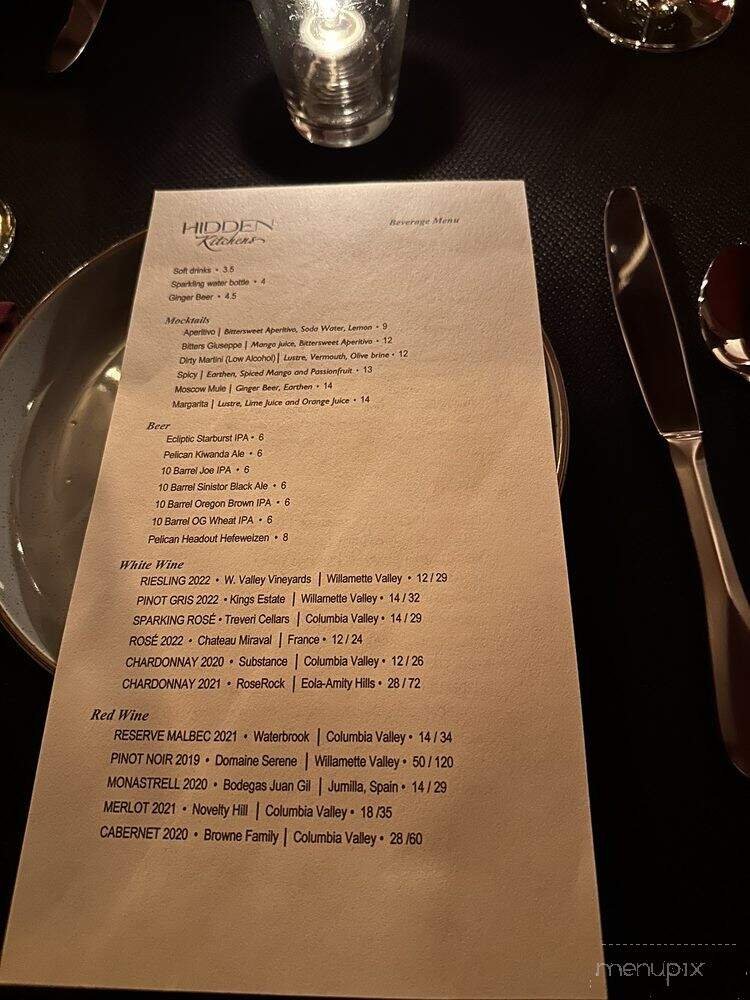 HIDDEN
Kitchens
Beverage Menu
Soft drinks • 3.5
Sparkling water bottle • 4
Ginger Beer • 4.5
Mocktails
Aperitivo | Bittersweet Aperitivo, Soda Water, Lemon • 9
Bitters Giuseppe | Mango juice, Bittersweet Aperitivo • 12
Dirty Martini (Low Alcohol) | Lustre, Vermouth, Olive brine • 12
Spicy | Earthen, Spiced Mango and Passionfruit • 13
Moscow Mule | Ginger Beer, Earthen • 14
Margarita | Lustre, Lime Juice and Orange Juice • 14
Beer
Ecliptic Starburst IPA • 6
Pelican Kiwanda Ale • 6
10 Barrel Joe IPA • 6
10 Barrel Sinistor Black Ale • 6
10 Barrel Oregon Brown IPA • 6
10 Barrel OG Wheat IPA • 6
Pelican Headout Hefeweizen • 8
White Wine
RIESLING 2022 • W. Valley Vineyards | Willamette Valley • 12 / 29
PINOT GRIS 2022 • Kings Estate | Willamette Valley • 14 / 32
SPARKING ROSÉ • Treveri Cellars | Columbia Valley • 14 / 29
ROSÉ 2022 • Chateau Miraval | France • 12 / 24
CHARDONNAY 2020 • Substance | Columbia Valley • 12 / 26
CHARDONNAY 2021 • RoseRock | Eola-Amity Hills • 28 / 72
Red Wine
RESERVE MALBEC 2021 • Waterbrook | Columbia Valley • 14 / 34
PINOT NOIR 2019 • Domaine Serene | Willamette Valley • 50 / 120
MONASTRELL 2020 • Bodegas Juan Gil | Jumilla, Spain • 14 / 29
MERLOT 2021 • Novelty Hill | Columbia Valley • 18 /35
CABERNET 2020 • Browne Family | Columbia Valley • 28 /60
menupix